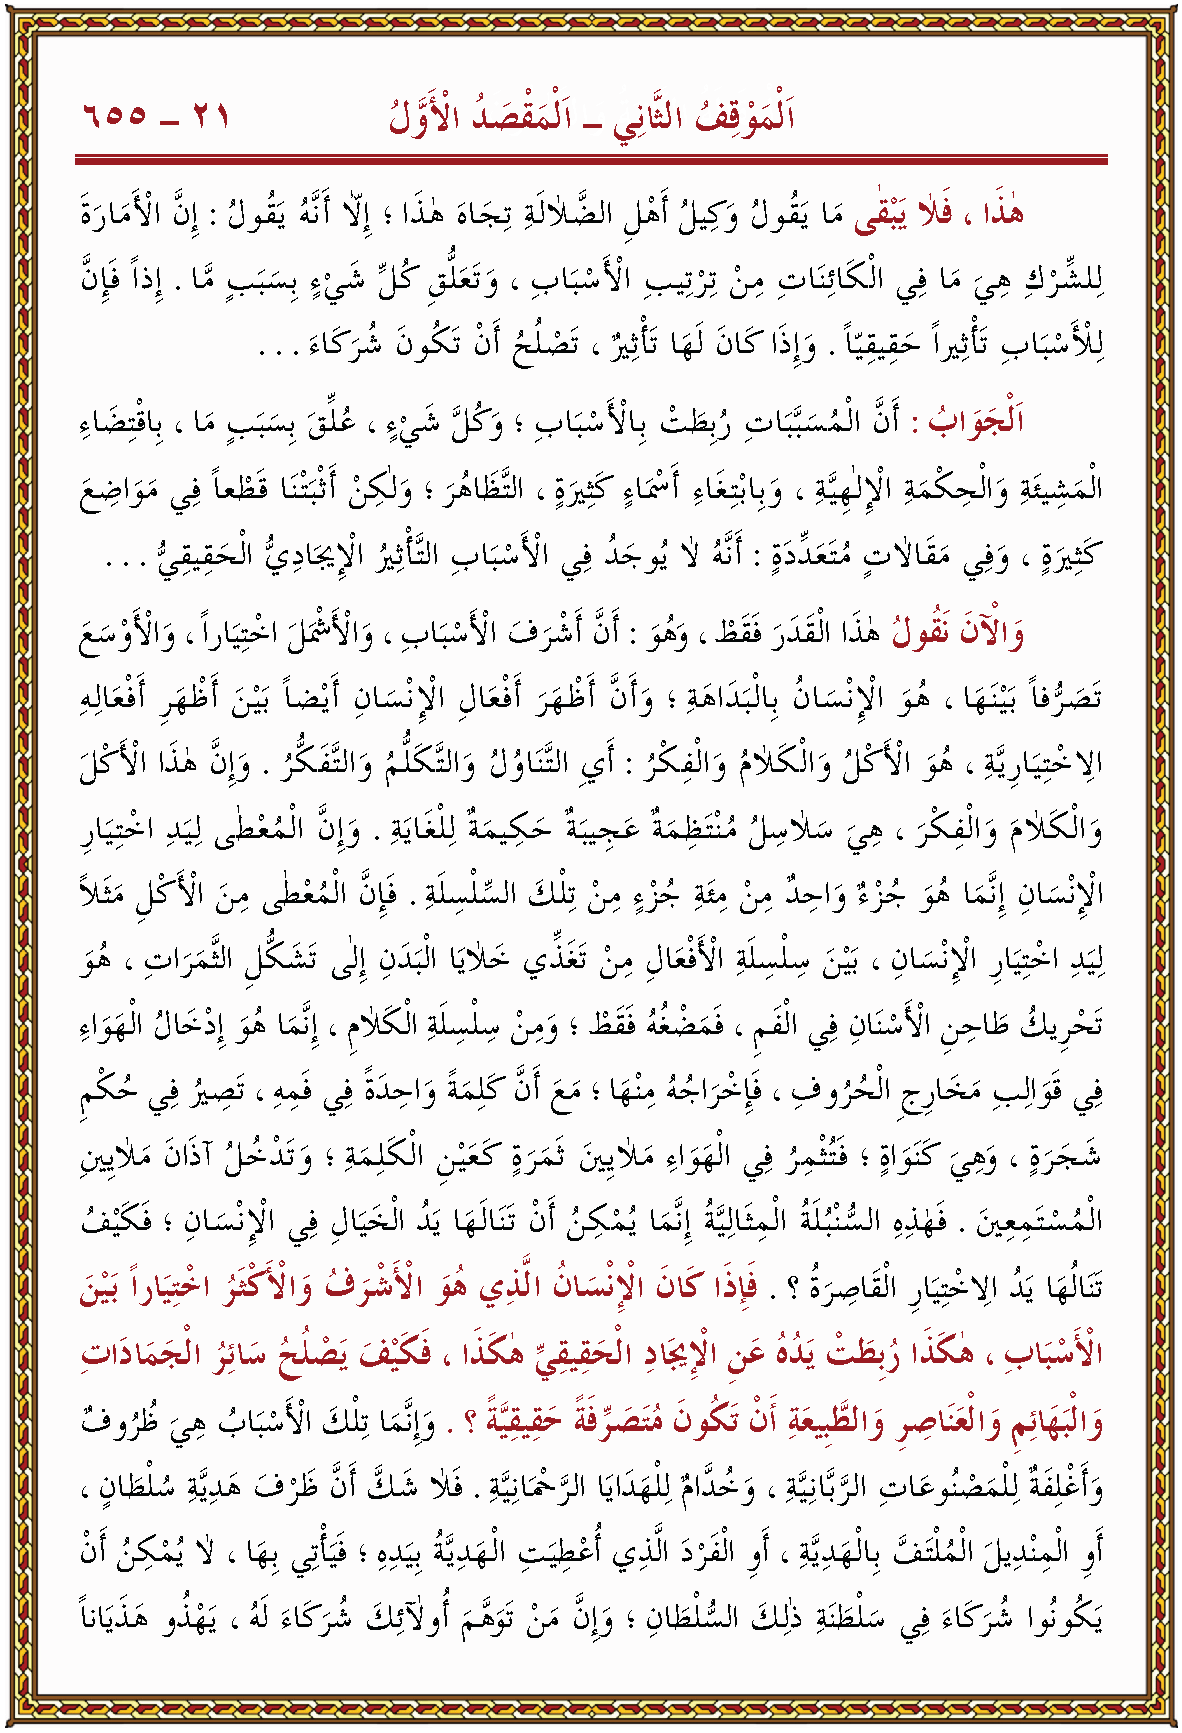 اَلْمَوْقِفُ الثَّانِي ـ اَلْمَقْصَدُ الْأَوَّلُ ٢١ ـ ٦٥٥
هٰذَا ، فَلاٰ يَبْقٰى مَا يَقُولُ وَكِيلُ أَهْلِ الضَّلاٰلَةِ تِجَاهَ هٰذَا ؛ إِلاّٰ أَنَّهُ يَقُولُ : إِنَّ الْأَمَارَةَ
لِلشِّرْكِ هِيَ مَا فِي الْكَائِنَاتِ مِنْ تِرْتِيبِ الْأَسْبَابِ ، وَتَعَلُّقِ كُلِّ شَيْءٍ بِسَبَبٍ مَّا . إِذاً فَإِنَّ
لِلْأَسْبَابِ تَأْثِيراً حَقِيقِيّاً . وَإِذَا كَانَ لَهَا تَأْثِيرٌ ، تَصْلُحُ أَنْ تَكُونَ شُرَكَاءَ . . .
اَلْجَوَابُ : أَنَّ الْمُسَبَّبَاتِ رُبِطَتْ بِالْأَسْبَابِ ؛ وَكُلَّ شَيْءٍ ، عُلِّقَ بِسَبَبٍ مَا ، بِاقْتِضَاءِ
الْمَشِيئَةِ وَالْحِكْمَةِ الْإِلٰهِيَّةِ ، وَبِابْتِغَاءِ أَسْمَاءٍ كَثِيرَةٍ ، التَّظَاهُرَ ؛ وَلٰكِنْ أَثْبَتْنَا قَطْعاً فِي مَوَاضِعَ
كَثِيرَةٍ ، وَفِي مَقَالاٰتٍ مُتَعَدِّدَةٍ : أَنَّهُ لاٰ يُوجَدُ فِي الْأَسْبَابِ التَّأْثِيرُ الْإِيجَادِيُّ الْحَقِيقِيُّ . . .
وَالْآنَ نَقُولُ هٰذَا الْقَدَرَ فَقَطْ ، وَهُوَ : أَنَّ أَشْرَفَ الْأَسْبَابِ ، وَالْأَشْمَلَ اخْتِيَاراً ، وَالْأَوْسَعَ
تَصَرُّفاً بَيْنَهَا ، هُوَ الْإِنْسَانُ بِالْبَدَاهَةِ ؛ وَأَنَّ أَظْهَرَ أَفْعَالِ الْإِنْسَانِ أَيْضاً بَيْنَ أَظْهَرِ أَفْعَالِهِ
الِاخْتِيَارِيَّةِ ، هُوَ الْأَكْلُ وَالْكَلاٰمُ وَالْفِكْرُ : أَيِ التَّنَاوُلُ وَالتَّكَلُّمُ وَالتَّفَكُّرُ . وَإِنَّ هٰذَا الْأَكْلَ
وَالْكَلاٰمَ وَالْفِكْرَ ، هِيَ سَلاٰسِلُ مُنْتَظِمَةٌ عَجِيبَةٌ حَكِيمَةٌ لِلْغَايَةِ . وَإِنَّ الْمُعْطٰى لِيَدِ اخْتِيَارِ
الْإِنْسَانِ إِنَّمَا هُوَ جُزْءٌ وَاحِدٌ مِنْ مِئَةِ جُزْءٍ مِنْ تِلْكَ السِّلْسِلَةِ . فَإِنَّ الْمُعْطٰى مِنَ الْأَكْلِ مَثَلاً
لِيَدِ اخْتِيَارِ الْإِنْسَانِ ، بَيْنَ سِلْسِلَةِ الْأَفْعَالِ مِنْ تَغَذِّي خَلاٰيَا الْبَدَنِ إِلٰى تَشَكُّلِ الثَّمَرَاتِ ، هُوَ
تَحْرِيكُ طَاحِنِ الْأَسْنَانِ فِي الْفَمِ ، فَمَضْغُهُ فَقَطْ ؛ وَمِنْ سِلْسِلَةِ الْكَلاٰمِ ، إِنَّمَا هُوَ إِدْخَالُ الْهَوَاءِ
فِي قَوَالِبِ مَخَارِجِ الْحُرُوفِ ، فَإِخْرَاجُهُ مِنْهَا ؛ مَعَ أَنَّ كَلِمَةً وَاحِدَةً فِي فَمِهِ ، تَصِيرُ فِي حُكْمِ
شَجَرَةٍ ، وَهِيَ كَنَوَاةٍ ؛ فَتُثْمِرُ فِي الْهَوَاءِ مَلاٰيِينَ ثَمَرَةٍ كَعَيْنِ الْكَلِمَةِ ؛ وَتَدْخُلُ آذَانَ مَلاٰيِينِ
الْمُسْتَمِعِينَ . فَهٰذِهِ السُّنْبُلَةُ الْمِثَالِيَّةُ إِنَّمَا يُمْكِنُ أَنْ تَنَالَهَا يَدُ الْخَيَالِ فِي الْإِنْسَانِ ؛ فَكَيْفَ
تَنَالُهَا يَدُ الِاخْتِيَارِ الْقَاصِرَةُ ؟ . فَإِذَا كَانَ الْإِنْسَانُ الَّذِي هُوَ الْأَشْرَفُ وَالْأَكْثَرُ اخْتِيَاراً بَيْنَ
الْأَسْبَابِ ، هٰكَذَا رُبِطَتْ يَدُهُ عَنِ الْإِيجَادِ الْحَقِيقِيِّ هٰكَذَا ، فَكَيْفَ يَصْلُحُ سَائِرُ الْجَمَادَاتِ
وَالْبَهَائِمِ وَالْعَنَاصِرِ وَالطَّبِيعَةِ أَنْ تَكُونَ مُتَصَرِّفَةً حَقِيقِيَّةً ؟ . وَإِنَّمَا تِلْكَ الْأَسْبَابُ هِيَ ظُرُوفٌ
وَأَغْلِفَةٌ لِلْمَصْنُوعَاتِ الرَّبَّانِيَّةِ ، وَخُدَّامٌ لِلْهَدَايَا الرَّحْمَانِيَّةِ . فَلاٰ شَكَّ أَنَّ ظَرْفَ هَدِيَّةِ سُلْطَانٍ ،
أَوِ الْمِنْدِيلَ الْمُلْتَفَّ بِالْهَدِيَّةِ ، أَوِ الْفَرْدَ الَّذِي أُعْطِيَتِ الْهَدِيَّةُ بِيَدِهِ ؛ فَيَأْتِي بِهَا ، لاٰ يُمْكِنُ أَنْ
يَكُونُوا شُرَكَاءَ فِي سَلْطَنَةِ ذٰلِكَ السُّلْطَانِ ؛ وَإِنَّ مَنْ تَوَهَّمَ أُولٰۤئِكَ شُرَكَاءَ لَهُ ، يَهْذُو هَذَيَاناً